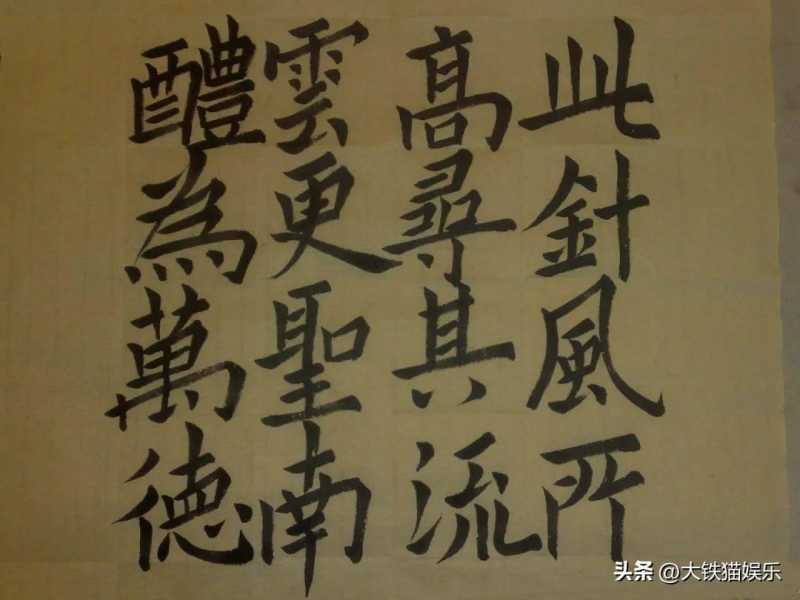 此針風所
高尋其流
雲更聖南
醴為萬德
头条 @大铁猫娱乐